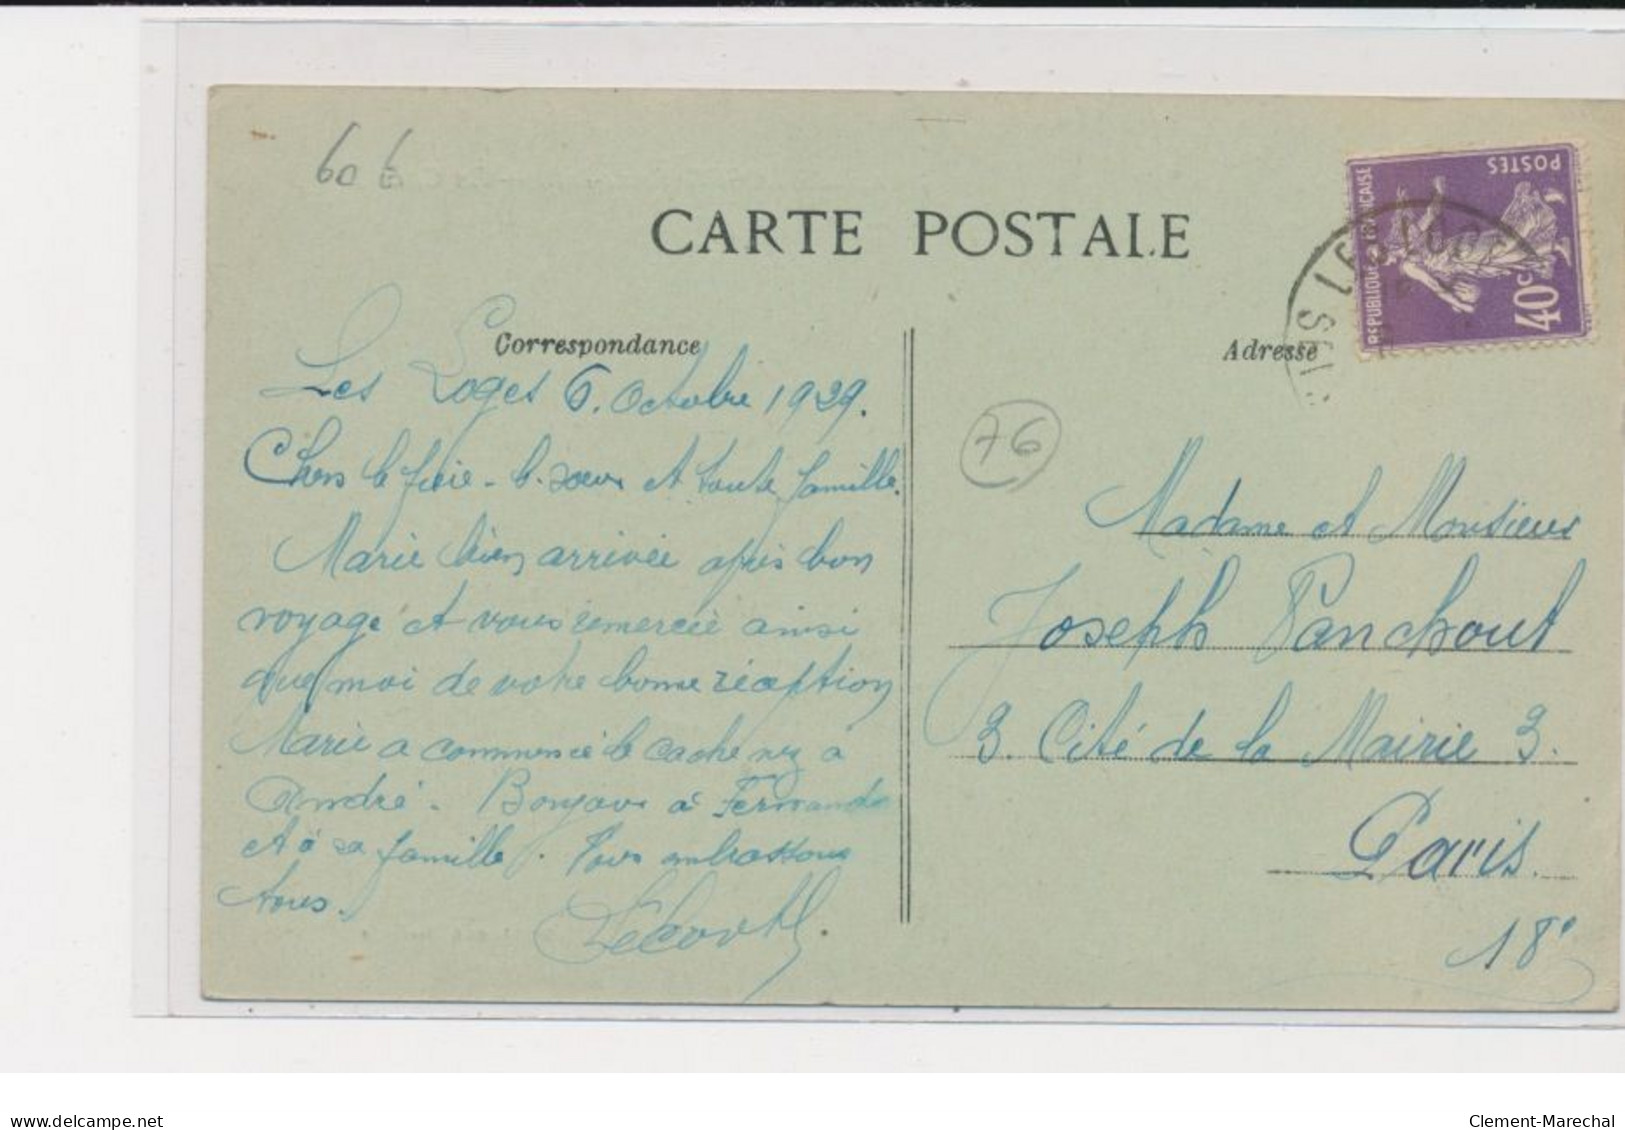 60 6
CARTE POSTALE
POSTES
REPUBLIQUE FRANCAISE
40c
LES LOGES
Correspondance
Adresse
Les Loges 6. Octobre 1929.
Chers b frère - b. soeur et toute famille.
Marie bien arrivée après bon
voyage et vous remercie ainsi
que moi de votre bonne réception
Marie a commencé le cache nez à
André. Bonjour à Fernande
et à sa famille. Vous embrassons
tous.
76
Madame et Monsieur
Joseph Panchout
3. Cité de la Mairie 3.
Paris.
18e
delcampe.net
Clement-Marechal